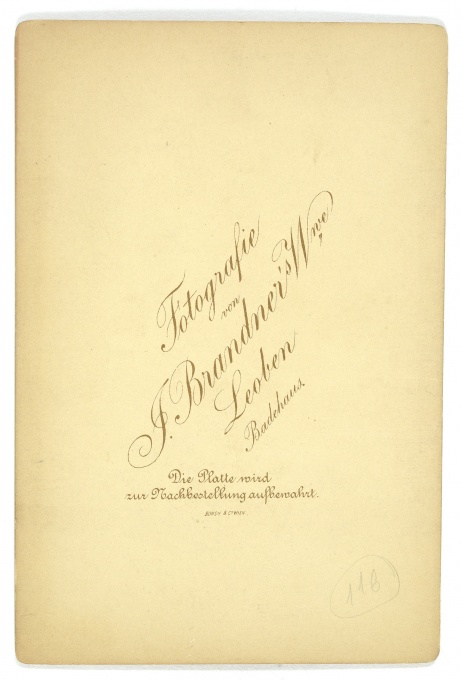 Fotografie
von
J. Brandner's Wwe
Leoben
Badehaus.
Die Platte wird
zur Nachbestellung aufbewahrt.
116